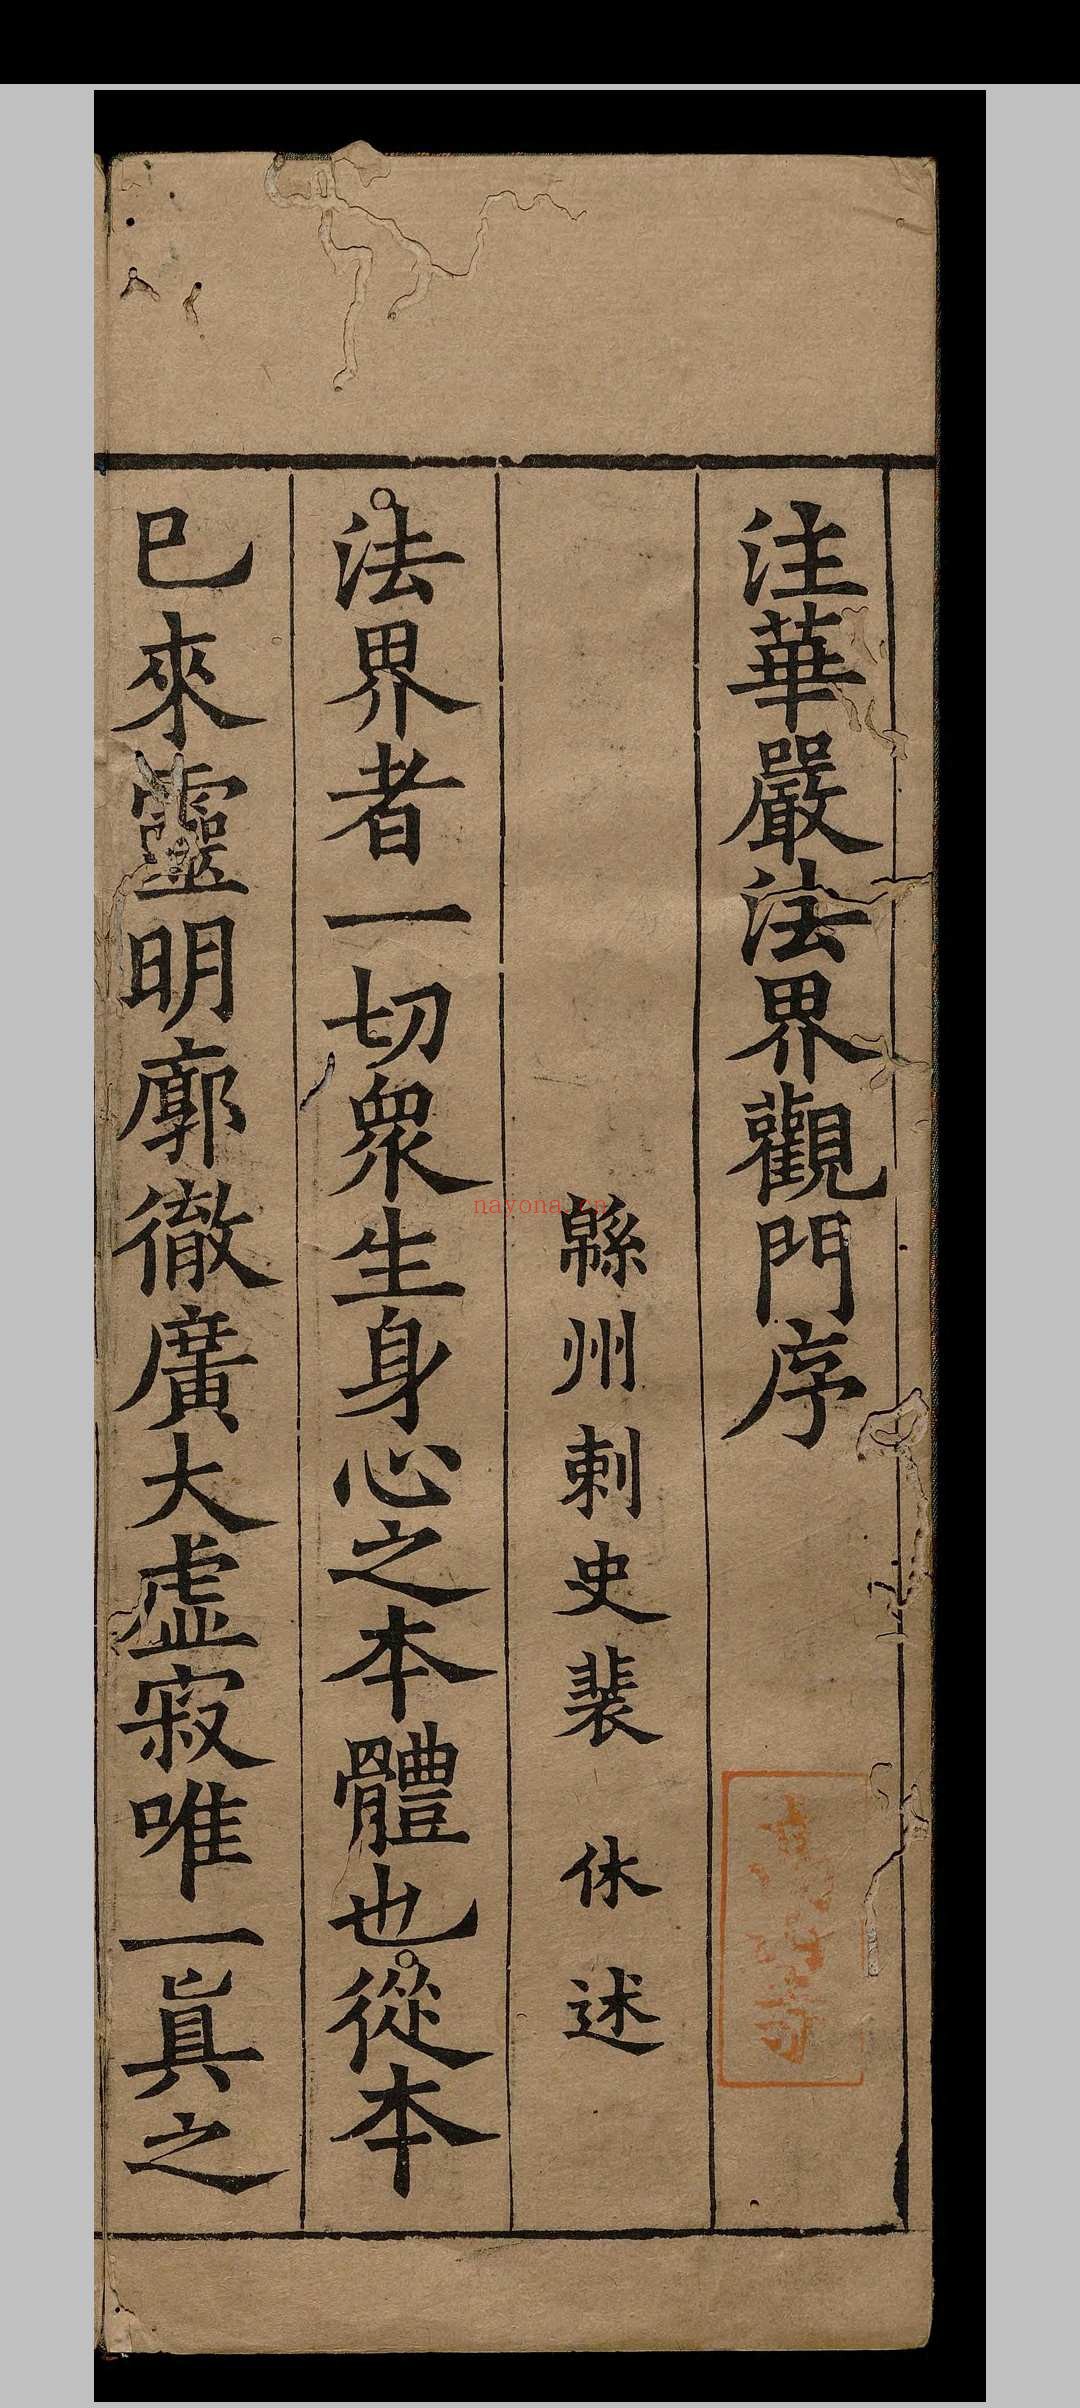 注華嚴法界觀門序
緜州刺史裴休述
法界者一切衆生身心之本體也從本
已來靈明廓徹廣大虛寂唯一眞之
nayona.cn